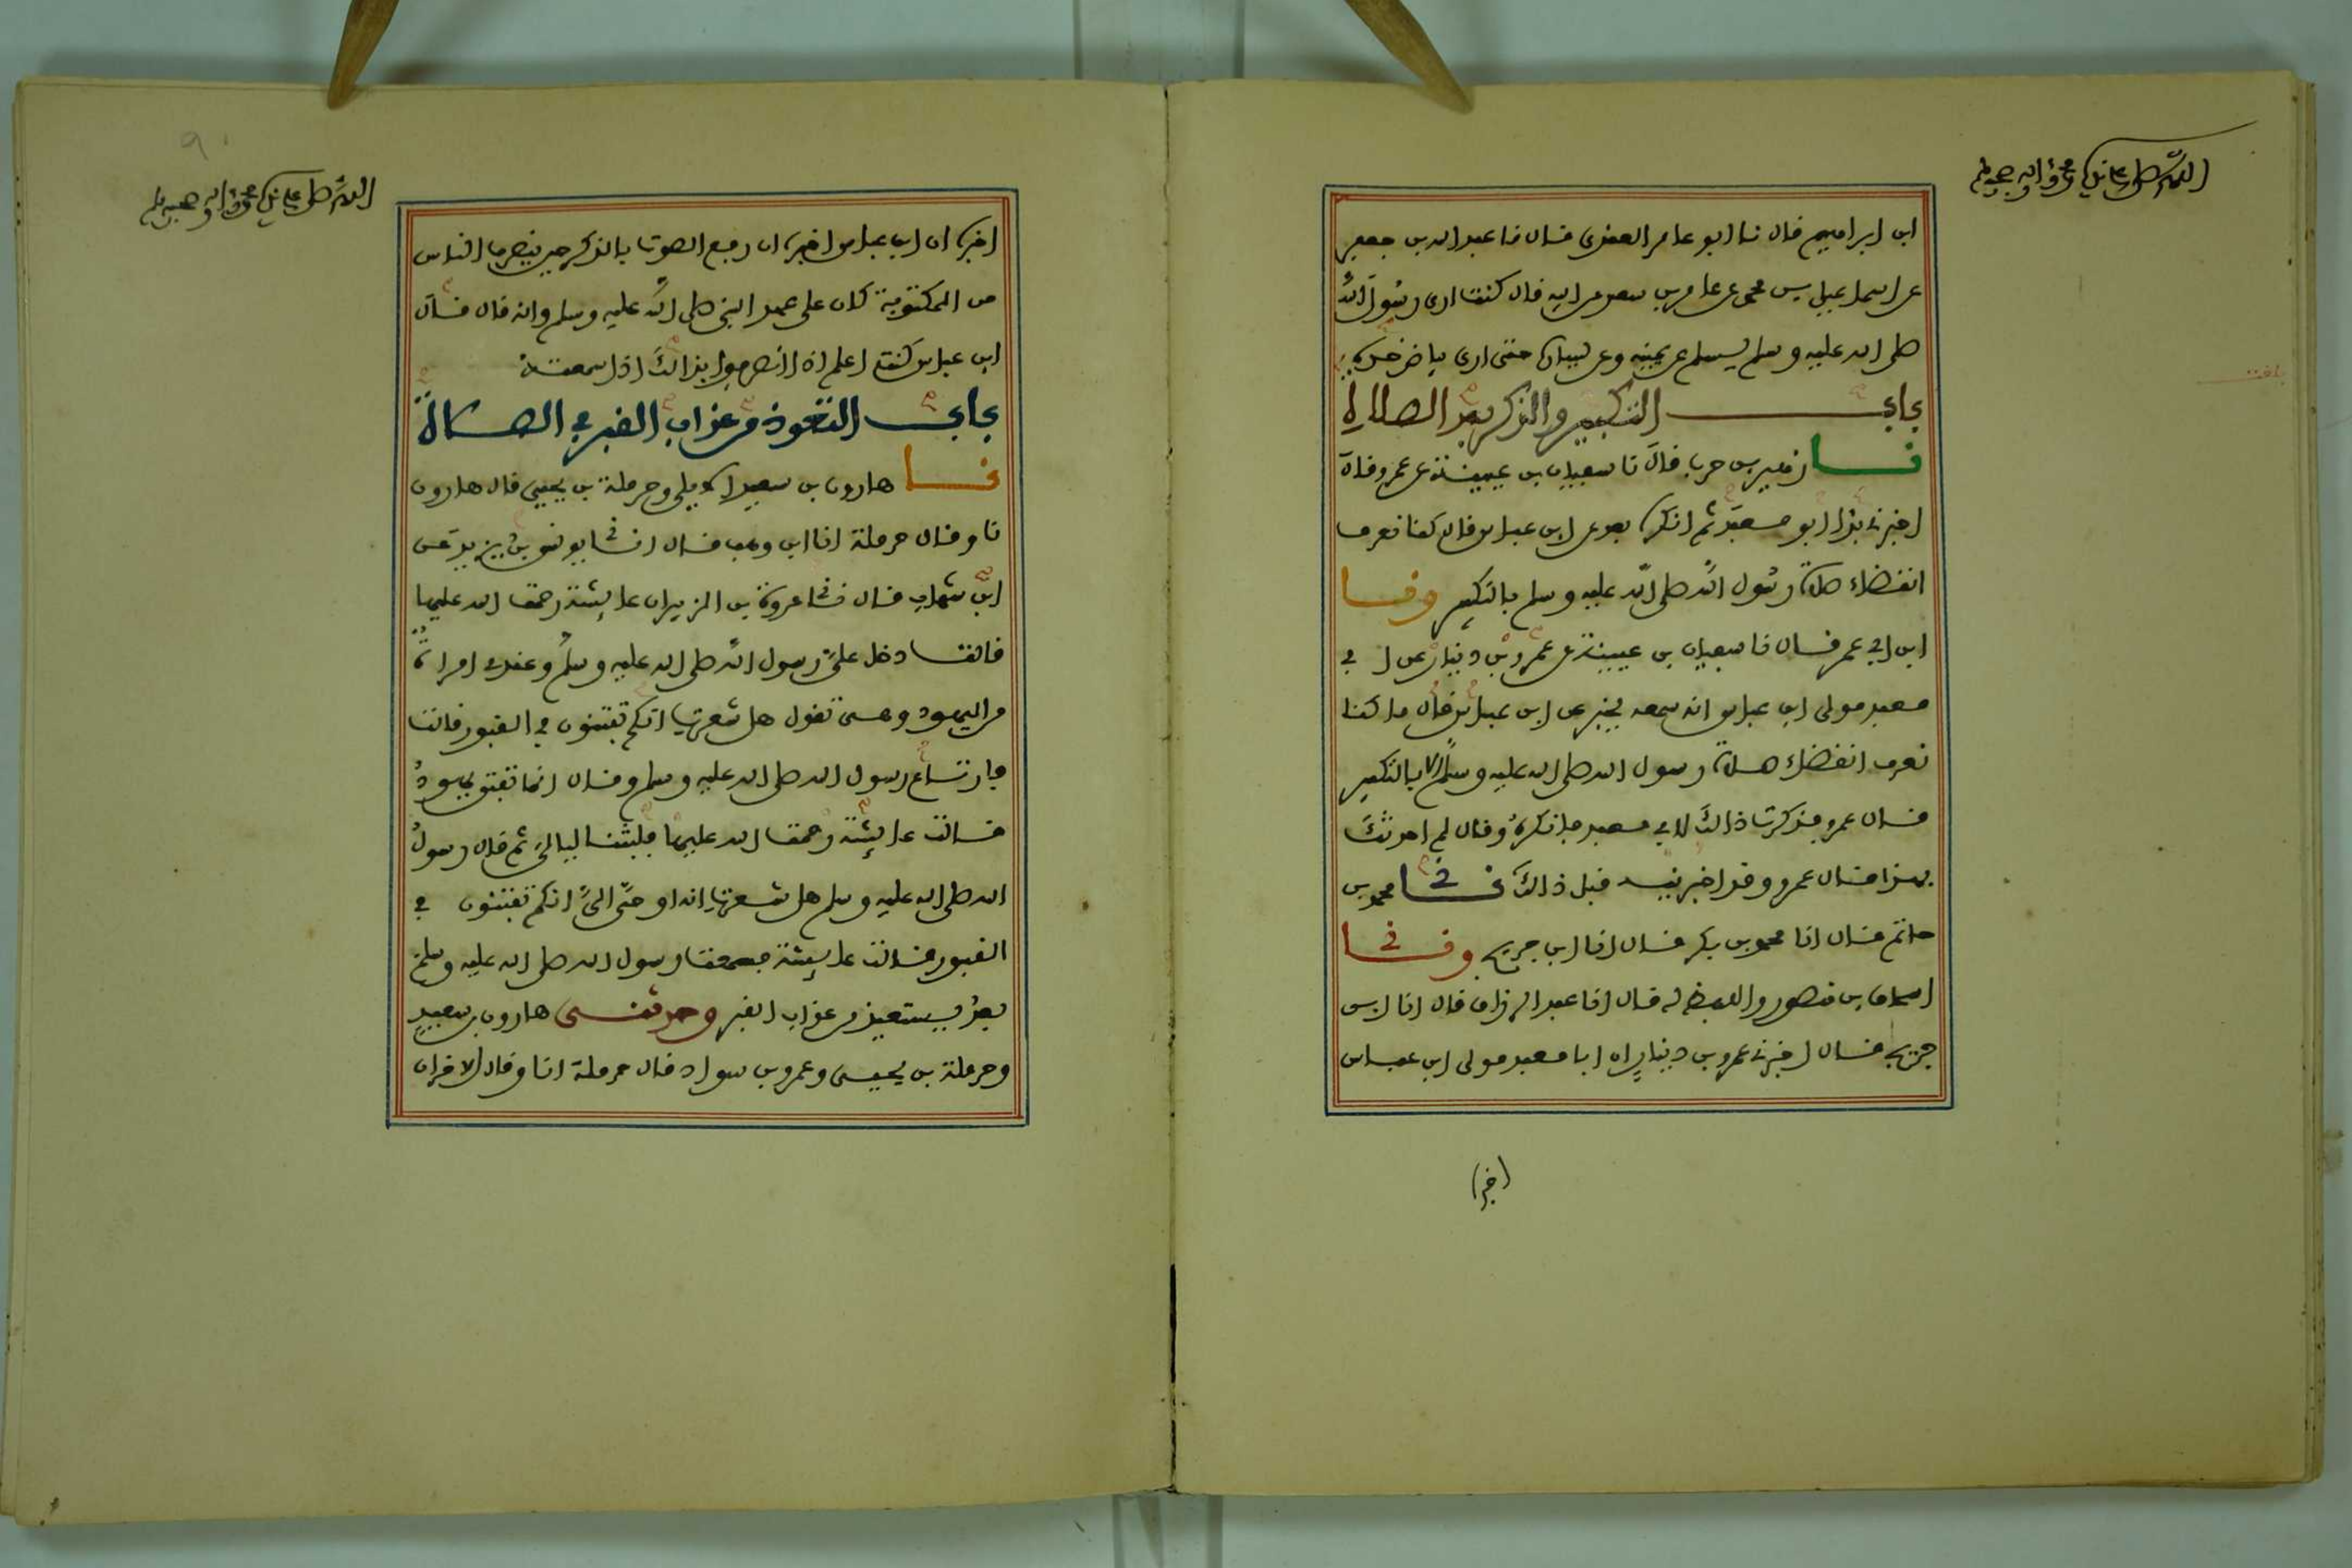 اللهم صل على سيدنا محمد وءاله وصحبه وسلم
ابن ابراهيم قال نا ابو عامر العقدي قال نا عبد الله بن جعفر
عن اسماعيل بن محمد عن عامر بن سعد عن ابيه قال كنت ارى رسول الله
صلى الله عليه وسلم يسلم عن يمينه وعن يساره حتى ارى بياض خده
باب التكبير والذكر بعد الصلاة
نا زهير بن حرب قال نا سفيان بن عيينة عن عمرو قال
اخبرني بذا ابو معبد ثم انكره بعد عن ابن عباس قال كنا نعرف
انقضاء صلاة رسول الله صلى الله عليه وسلم بالتكبير ونا
ابن ابي عمر قال نا سفيان بن عيينة عن عمرو بن دينار عن ابي
معبد مولى ابن عباس انه سمعه يخبر عن ابن عباس قال ما كنا
نعرف انقضاء صلاة رسول الله صلى الله عليه وسلم الا بالتكبير
قال عمرو فذكرت ذالك لابي معبد فانكره وقال لم احدثك
بهذا قال عمرو وقد اخبرنيه قبل ذالك نا محمد بن
حاتم قال انا محمد بن بكر قال انا ابن جريج ونا
اسحاق بن منصور واللفظ له قال انا عبد الرزاق قال انا ابن
جريج قال اخبرني عمرو بن دينار ان ابا معبد مولى ابن عباس
اخبره
اللهم صل على سيدنا محمد وءاله وصحبه وسلم
اخبره ان ابن عباس اخبره ان رفع الصوت بالذكر حين ينصرف الناس
من المكتوبة كان على عهد النبي صلى الله عليه وسلم وانه قال قال
ابن عباس كنت اعلم اذا انصرفوا بذالك اذا سمعته
باب التعوذ من عذاب القبر في الصلاة
نا هارون بن سعيد الايلي وحرملة بن يحيى قال هارون
نا وقال حرملة انا ابن وهب قال اني يونس بن يزيد عن
ابن شهاب قال ني عروة بن الزبير ان عائشة رحمت الله عليها
قالت دخل علي رسول الله صلى الله عليه وسلم وعندي امراة
من اليهود وهي تقول هل شعرت انكم تفتنون في القبور قالت
فارتاع رسول الله صلى الله عليه وسلم وقال انما تفتن يهود
قالت عائشة رحمت الله عليها فلبثنا ليالي ثم قال رسول
الله صلى الله عليه وسلم هل شعرت انه اوحي الي انكم تفتنون في
القبور قالت عائشة فسمعت رسول الله صلى الله عليه وسلم
بعد يستعيذ من عذاب القبر وحدثني هارون بن سعيد
وحرملة بن يحيى وعمرو بن سواد قال حرملة انا وقال الاخران